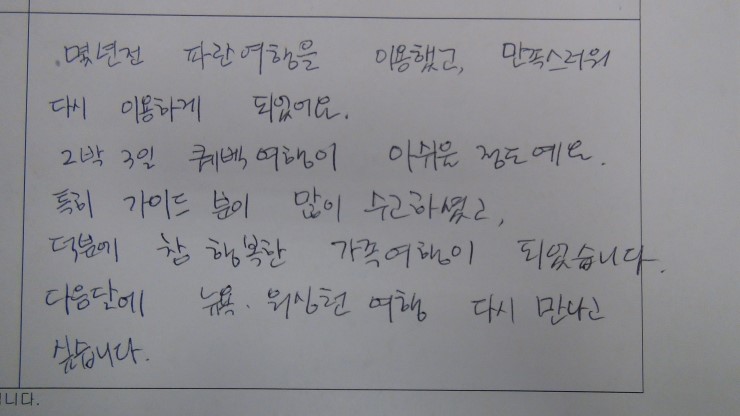 몇년전 파란여행을 이용했고, 만족스러워
다시 이용하게 되었어요.
2박 3일 퀘벡여행이 아쉬운 정도예요.
특히 가이드 분이 많이 수고하셨고,
덕분에 참 행복한 가족여행이 되었습니다.
다음달에 뉴욕·워싱턴 여행 다시 만나고
싶습니다.
니다.